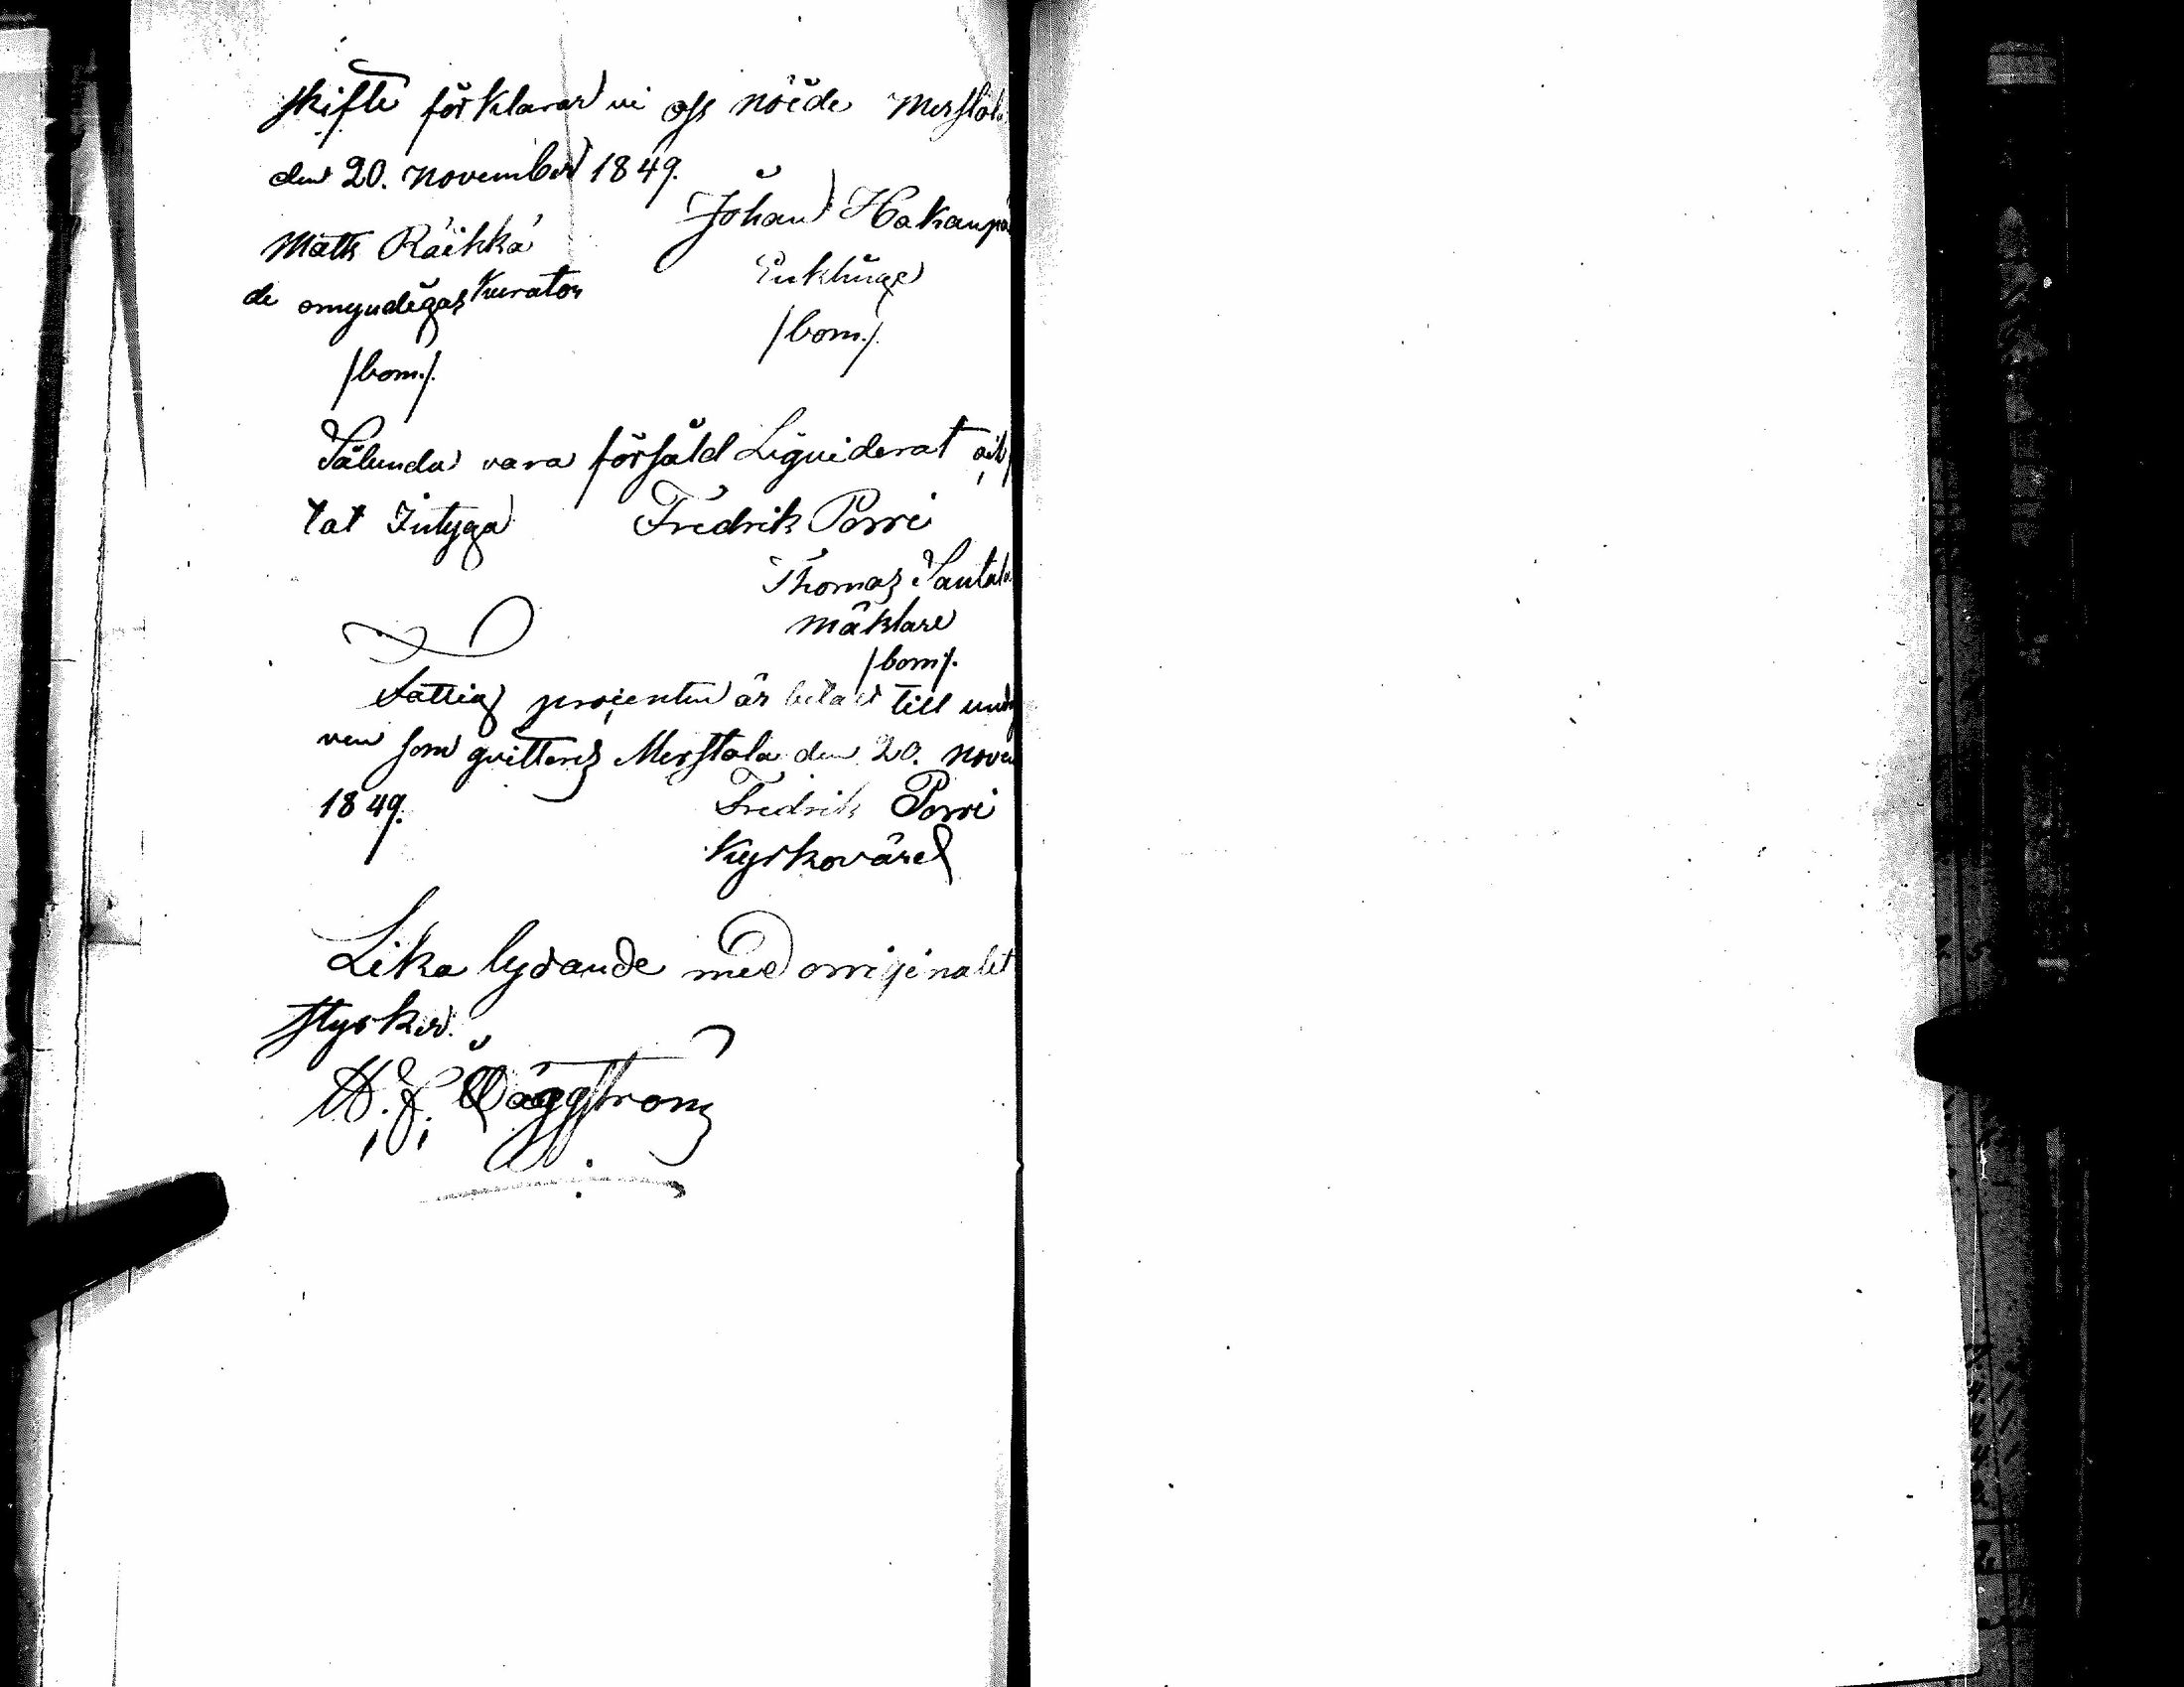 skifte förklarar vi oss nöide Merstola
den 20. November 1849.
Johan Hakanpä
Matts Räikkä
Enklinge
de omyndigas Kurator
/bom./.
/bom./.
Sålunda vara försåld Liquiderat
tat Intyga Fredrik Porri
Thomas Santala
mäklare
/bom/.
Fattig projenten är betalt till
ven som qvitteras Merstola den 20. Nove
1849. Fredrik Porri
Kyrkovärd
Lika lydande med orriginalet
stycker.
Häggström